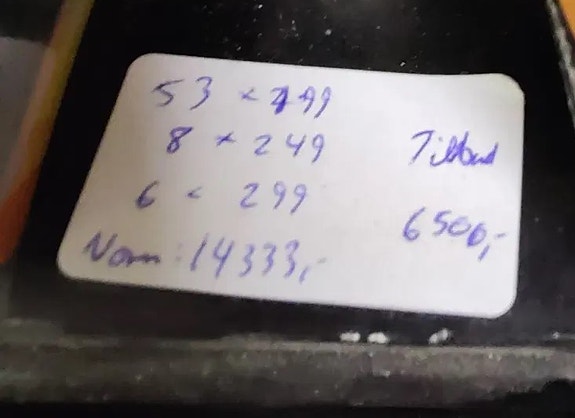 53 × 199
8 × 249
6 × 299
Norm: 14333,-
Tilbud
6500,-